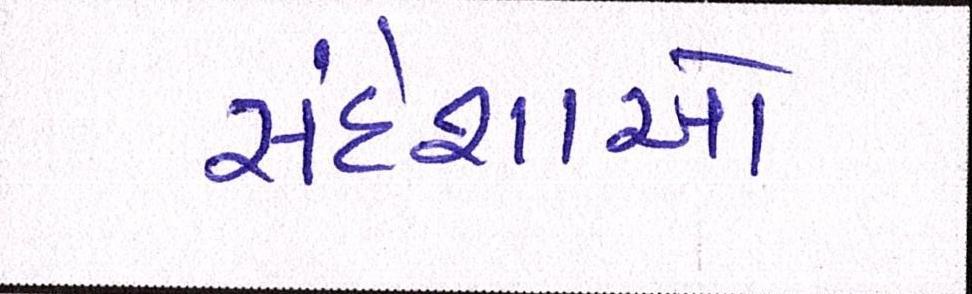 સંદેશાઓ